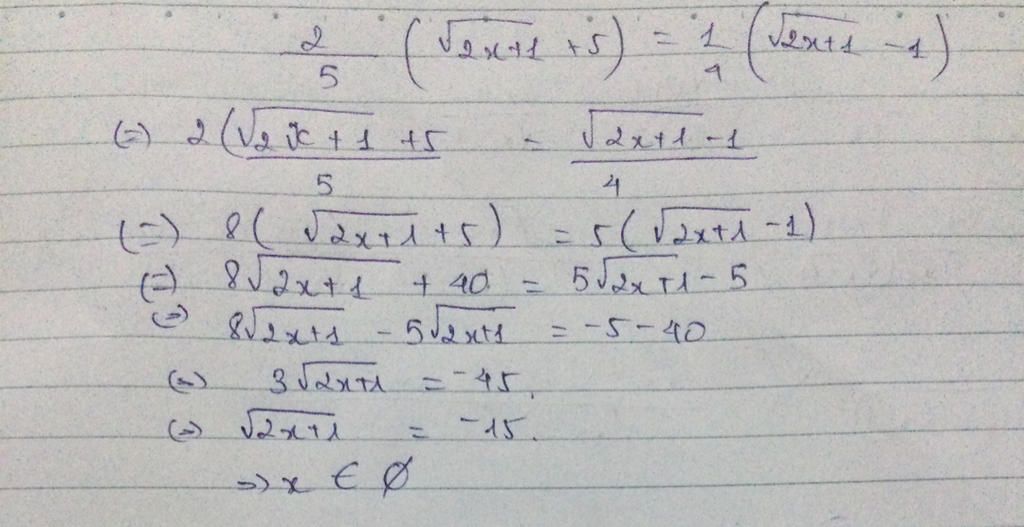 2/5 (√2x+1 +5) = 1/4 (√2x+1 -1)
(=) 2(√2x+1 +5 / 5 = √2x+1 -1 / 4
(=) 8( √2x+1 +5) = 5(√2x+1 -1)
(=) 8√2x+1 + 40 = 5√2x+1 - 5
(=) 8√2x+1 - 5√2x+1 = -5 - 40
(=) 3√2x+1 = -45.
(=) √2x+1 = -15.
=> x ∈ ∅